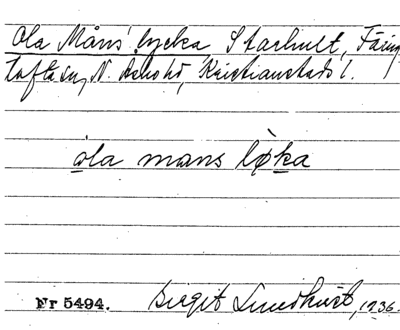 Ola Måns' lycka Starhult, Färing
tofta sn, N. Åsbo hd, Kristianstads l.
ola mans løka
Nr 5494.
Birgit Lundkvist, 1936.